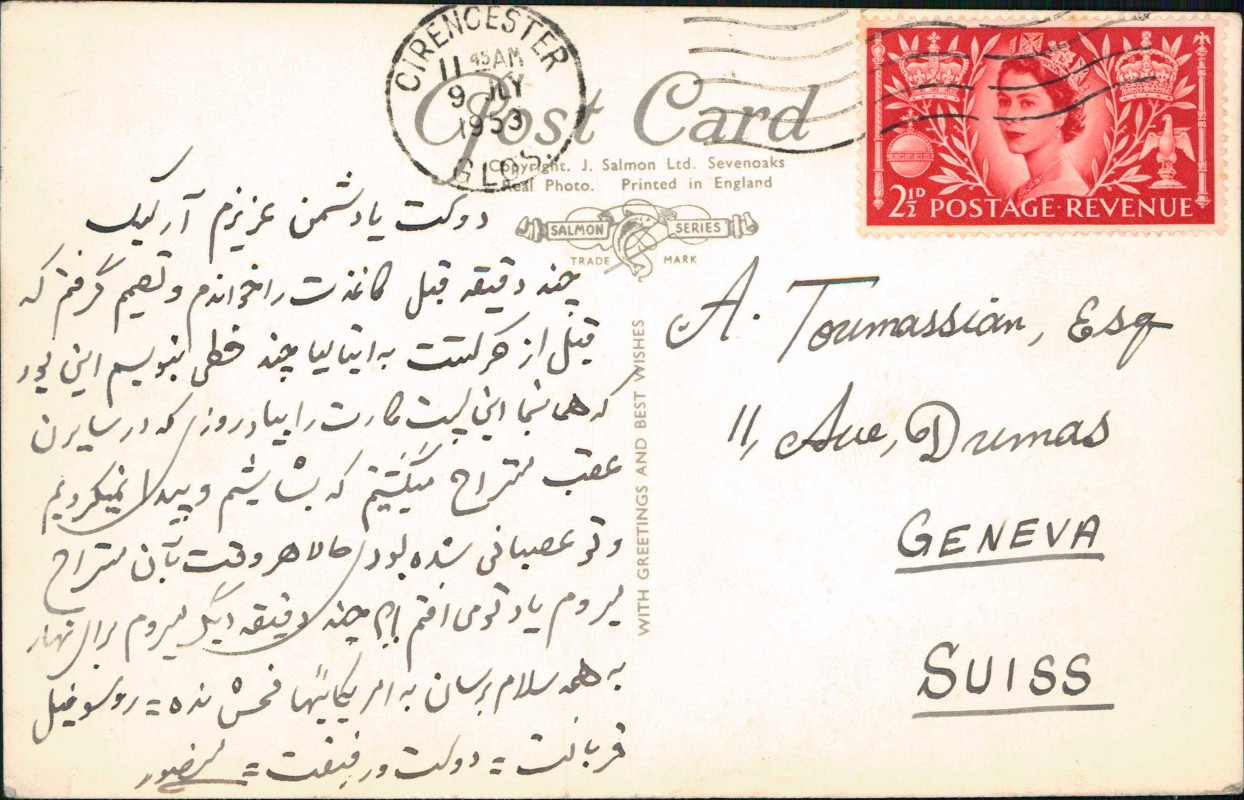 CIRENCESTER
11 45 AM
9 JLY
1953
GLOS.
Post Card
Copyright. J. Salmon Ltd. Sevenoaks
Real Photo. Printed in England
SALMON SERIES
TRADE MARK
2½D POSTAGE·REVENUE
WITH GREETINGS AND BEST WISHES
دوست یا دشمن عزیزم آرلیک
چند دقیقه قبل کاغذت را خواندم و تصمیم گرفتم که
قبل از حرکتت به ایتالیا چند خطی بنویسم این بود
که همی این پست کارت را بیاد روزی که در سایرن
عقب مستراح میگشتیم که بشاشیم و پیدا نمیکردیم
و تو عصبانی شده بودی حالا هر وقت بآن مستراح
میروم یاد تو می افتم چند دقیقه دیگر میروم برای نهار
به همه سلام برسان به امریکائیها فحش نده =
قربانت = دوست و رفیقت = منصور
A. Toumassian, Esq
11, Ave, Dumas
GENEVA
SUISS